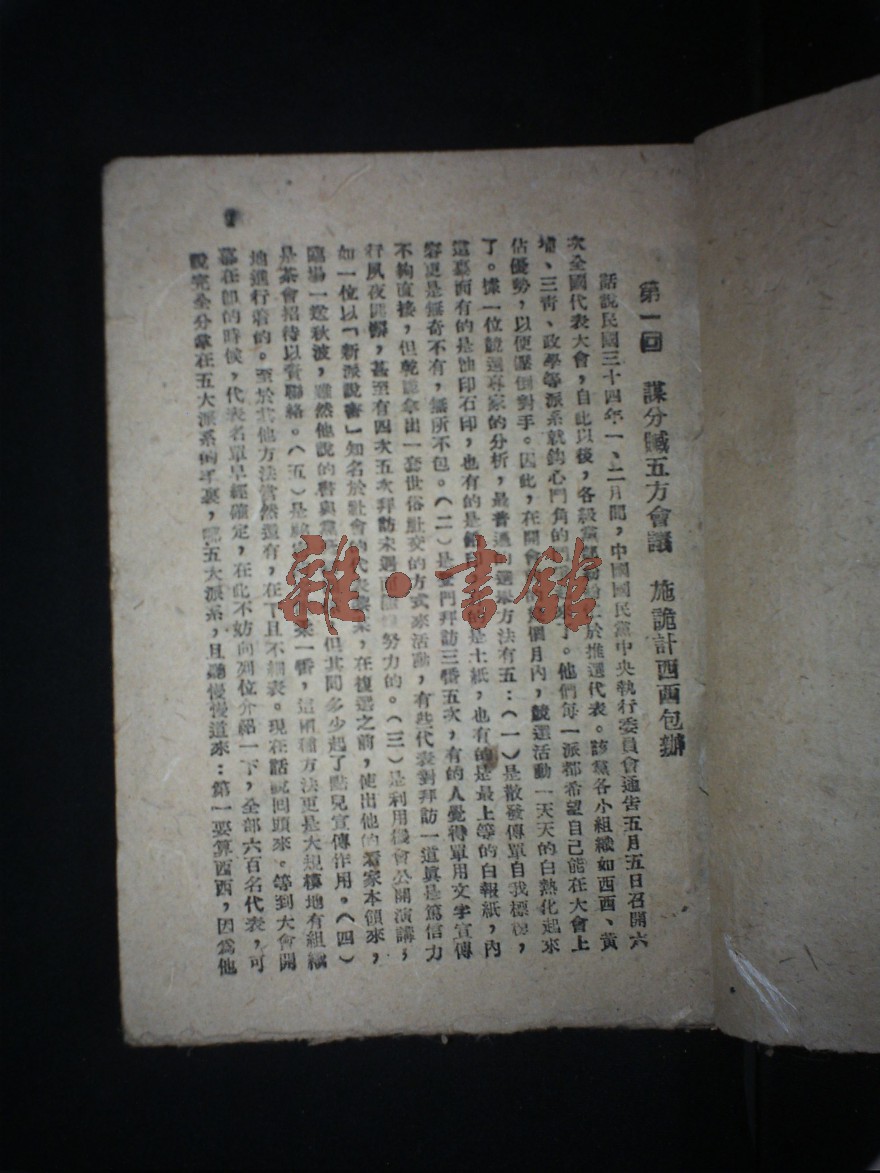 第一回　謀分贓五方會議　施詭計西西包辦
話說民國三十四年一、二月間，中國國民黨中央執行委員會通告五月五日召開六
次全國代表大會，自此以後，各級黨部紛紛於推選代表。該黨各小組織如西西、黃
埔、三青、政學等派系就鈎心鬥角的了。他們每一派都希望自己能在大會上
佔優勢，以便壓倒對手。因此，在開會個月內，競選活動一天天的白熱化起來
了。據一位競選專家的分析，最普通的選舉方法有五：（一）是散發傳單自我標榜，
這裏面有的是油印石印，也有的是鉛印是土紙，也有的是最上等的白報紙，內
容更是無奇不有，無所不包。（二）是登門拜訪三番五次，有的人覺得單用文字宣傳
不夠直接，但乾脆拿出一套世俗社交的方式來活動，有些代表對拜訪一道眞是篤信力
行夙夜匪懈，甚至有四次五次拜訪未遇而努力的。（三）是利用機會公開演講，
如一位以「新派說書」知名於社會的代表，在複選之前，使出他的看家本領來，
臨場一送秋波，雖然他說的書與黨但其間多少起了點兒宣傳作用。（四）
是茶會招待以資聯絡。（五）是一番，這兩種方法更是大規模地有組織
地進行着的。至於其他方法當然還有，在下且不細表。現在話說回頭來。等到大會開
幕在卽的時候，代表名單早經確定，在此不妨向列位介紹一下，全部六百名代表，可
說完全分拿在五大派系的手裏，呢五大派系，且聽慢慢道來：第一要算西西，因爲他
雜·書館